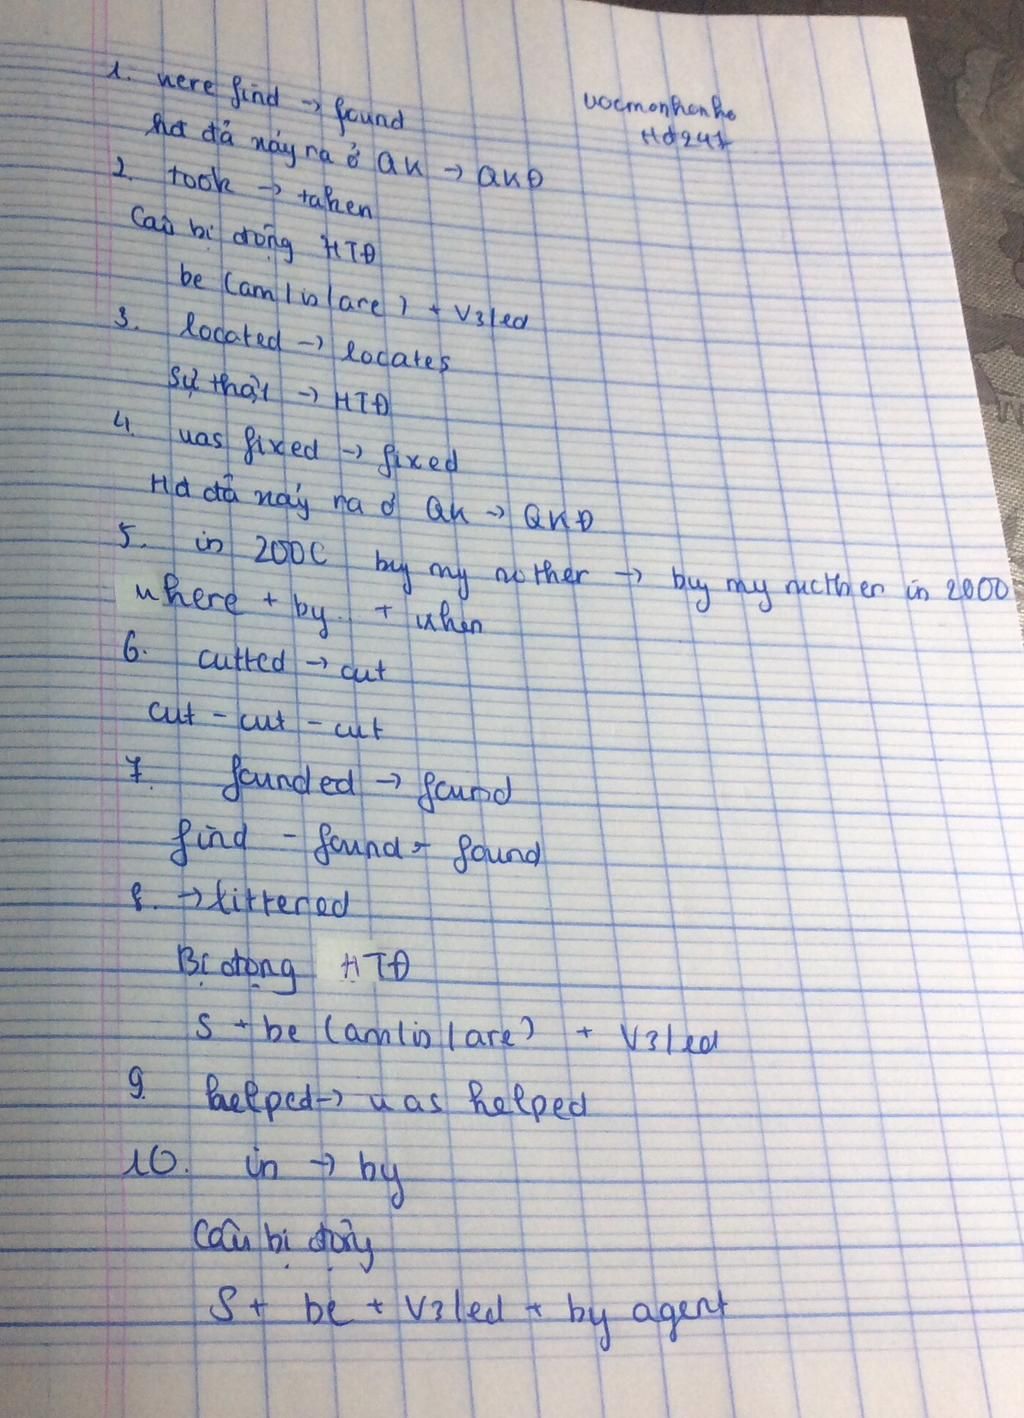 1. were find → found
uocmonhonho
Hđ247
Hđ đã xảy ra ở QK → QKĐ
2. took → taken
Câu bị động HTĐ
be (am/is/are) + V3/ed
3. located → locates
Sự thật → HTĐ
4. was fixed → fixed
Hđ đã xảy ra ở QK → QKĐ
5. in 2000 by my mother → by my mother in 2000
where + by.. + when
6. cutted → cut
cut - cut - cut
7. founded → found
find - found - found
8. → littered
Bị động HTĐ
S + be (am/is/are) + V3/ed
9. helped → was helped
10. in → by
Câu bị động
S + be + V3/ed + by agent